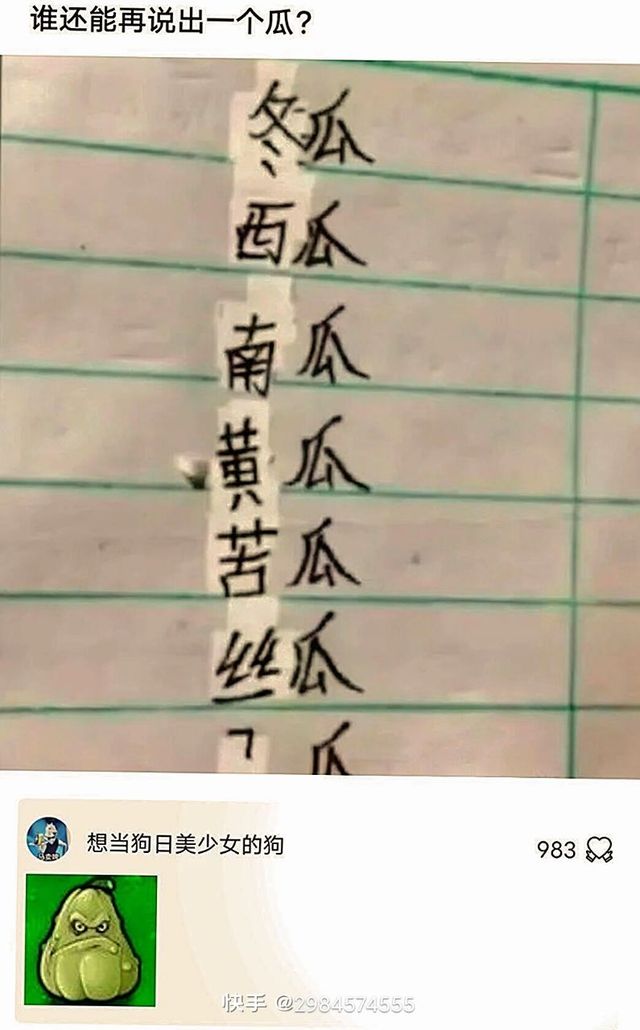 谁还能再说出一个瓜?
冬瓜
西瓜
南瓜
黄瓜
苦瓜
丝瓜
瓜
想当狗日美少女的狗
983
快手 @2984574555